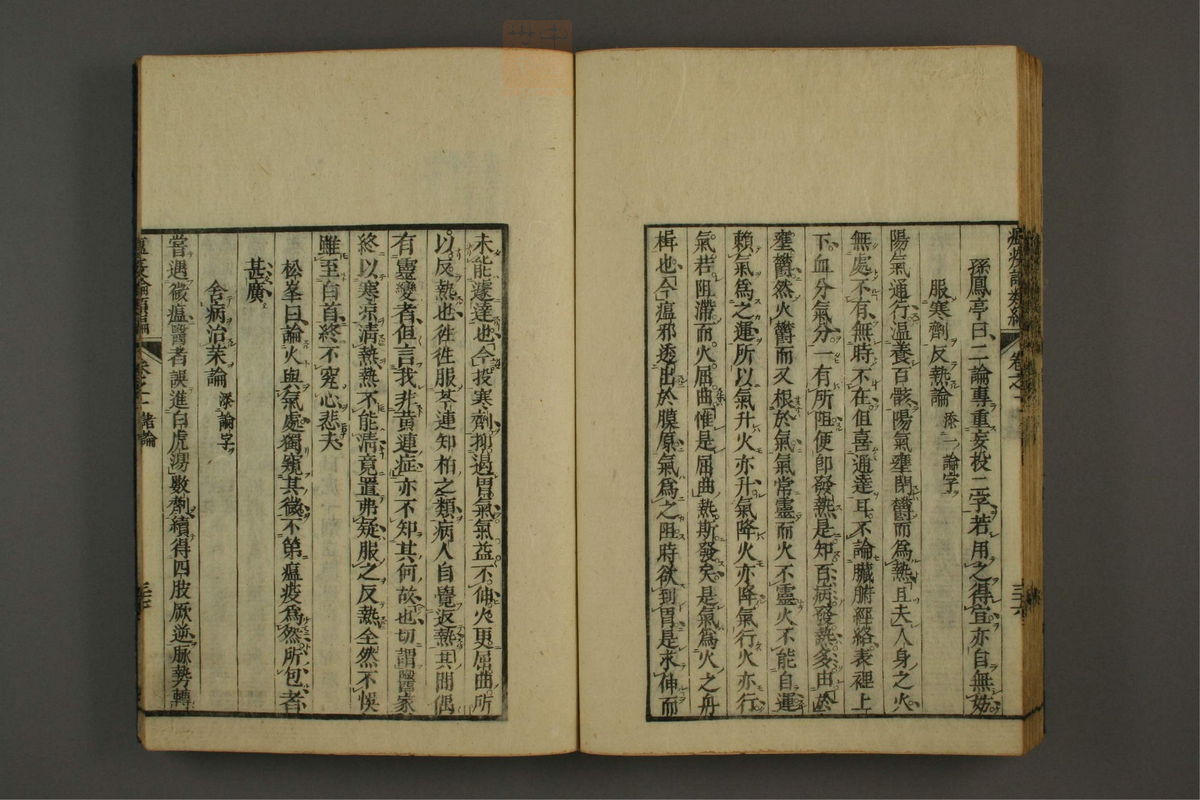 瘟疫論類編 卷之一
孫鳳亭曰二論專重妄投二字若用之得宜亦自無妨
服寒劑反熱論 添一論字
陽氣通行温養百骸陽氣壅閉鬱而爲熱且夫人身之火
無處不有無時不在但喜通達耳不論臟腑經絡表裡上
下血分氣分一有所阻便即發熱是知百病發熱多由於
壅鬱然火鬱而又根於氣氣常靈而火不靈火不能自運
賴氣爲之運所以氣升火亦升氣降火亦降氣行火亦行
氣若阻滯而火屈曲惟是屈曲熱斯發矣是氣爲火之舟
楫也今瘟邪透出於膜原氣爲之阻時欲到胃是求伸而
未能遽達也今投寒劑抑遏胃氣氣益不伸火更屈曲所
以反熱也徃徃服芩連知柏之類病人自覺返熱其間偶
有靈變者但言我非黄連症亦不知其何故也切謂醫家
終以寒凉清熱熱不能清竟置弗疑服之反熱全然不悮
雖至白首終不究心悲夫
松峯曰論火與氣處獨窺其微不第瘟疫爲然所包者
甚廣
舍病治藥論 添論字
嘗遇微瘟醫者誤進白虎湯數劑續得四肢厥逆脉勢轉
瘟疫論類編 卷之一 諸論